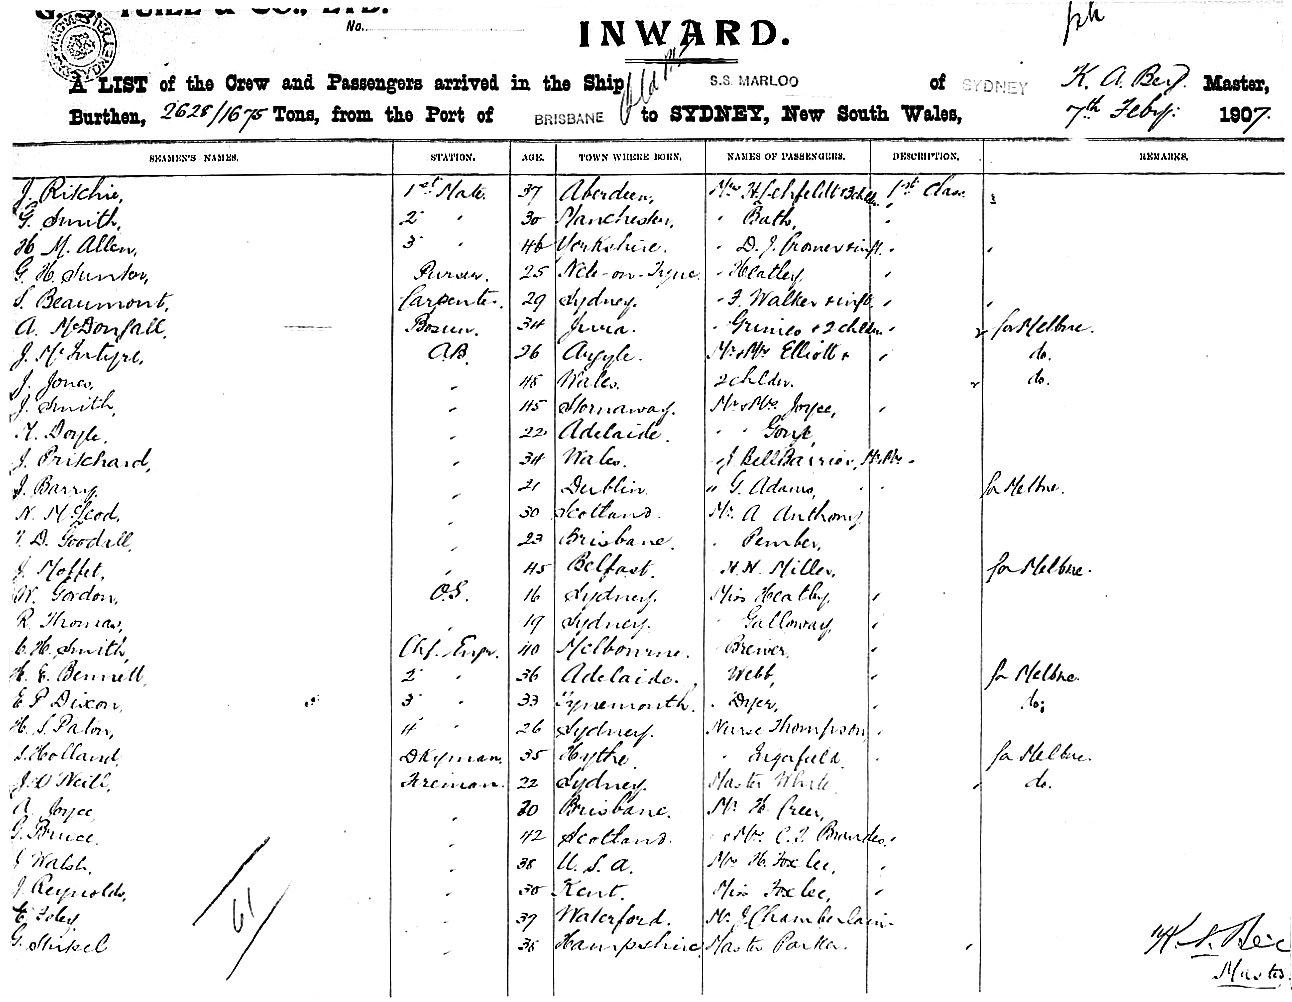 No.
INWARD.
A LIST of the Crew and Passengers arrived in the Ship S.S. MARLOO of SYDNEY Master,
Burthen, 2628/1675 Tons, from the Port of BRISBANE to SYDNEY, New South Wales, 7th Feby: 1907.
SEAMEN'S NAMES. STATION. AGE. TOWN WHERE BORN. NAMES OF PASSENGERS. DESCRIPTION. REMARKS.
J. Ritchie, 1st Mate. 37 Aberdeen, Mrs 1st Class
G. Smith, 2 " 30 Manchester, " Bath, "
H. M. Allen, 3 " 46 Yorkshire. " D. J. "
G. H. Purser. 25 " Heatley, "
S. Beaumont, Carpenter. 29 Sydney. " F. Walker & inft. "
A. McDougall, Bosun. 34 " Grimes & 2 chldrn " for Melbne.
J. McIntyre, A.B. 26 Argyle. Mr & Mrs Elliott & " do.
J. Jones, " 45 Wales. 2 chldrn. do.
J. Smith, " 45 Stornaway. Mr & Mrs Joyce, "
Doyle, " 22 Adelaide. " "
J. Pritchard, " 34 Wales. " J Bell
J. Barry, " 21 Dublin. " G. Adams, " for Melbne.
N. McLeod, " 30 Scotland. Mr. A Anthony,
D. Goodall, " 23 Brisbane. " Pember,
J. Moffet, " 45 Belfast. " Miller, for Melbne.
W. Gordon, O.S. 16 Sydney. Miss Heatley, "
R. Thomas, " 19 Sydney. " Galloway, "
C. H. Smith, Chf. Engr. 40 Melbourne. " Brewer,
H. E. Bennett, 2 " 36 Adelaide. " Webb, " for Melbne.
E P Dixon, 3 " 33 Tynemouth. " Dyer, " do.
H. S. Paton, 4 " 26 Sydney. Nurse Thompson,
S. Holland, Dkyman. 35 Hythe. " " for Melbne.
J. O'Neill, Fireman. 22 Sydney. Master White. do.
A Joyce, " 20 Brisbane. Mr H. Creer,
G. Bruce. " 42 Scotland. " & Mrs. "
J Walsh, " 38 U. S. A. Mrs H. Foxlee, "
J. Reynolds, " 30 Kent. Miss Foxlee, "
E. Foley, " 39 Waterford. Mr. J. Chamberlain "
G. " 38 Hampshire Master Parker. "
61
Master